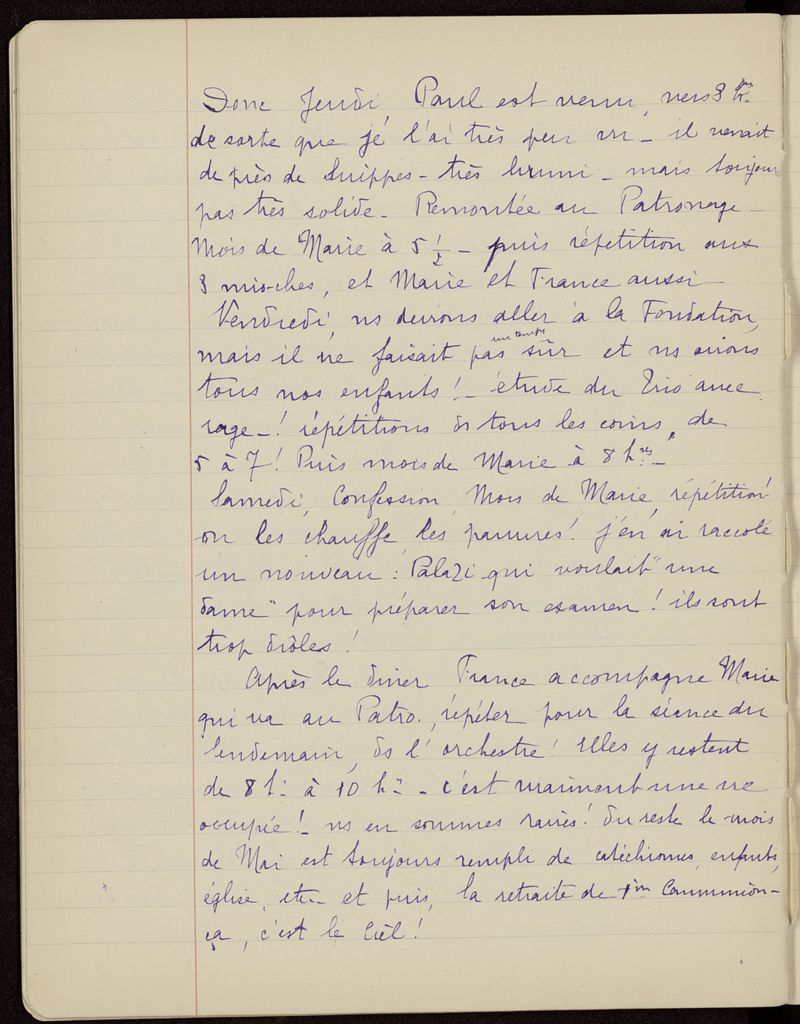 Donc Jeudi Paul est venu, vers 3 hres
de sorte que je l'ai très peu vu _ il venait
de près de Suippes _ très bruni _ mais toujours
pas très solide _ Remontée au Patronage _
Mois de Marie à 5 1/2 _ puis répétition aux
3 mioches, et Marie et France aussi _
Vendredi, ns devions aller à la Fondation,
un temps
mais il ne faisait pas sûr et ns avions
tous nos enfants ! _ étude du Trio avec
rage _ ! répétitions ds tous les coins, de
5 à 7 ! Puis mois de Marie à 8 hres _
Samedi, Confession, Mois de Marie, répétition !
on les chauffe, les pauvres ! j'en ai raccolé
un nouveau : Palazi qui voulait "une
dame" pour préparer son examen ! ils sont
trop drôles !
Après le diner France accompagne Marie
qui va au Patro., répéter pour la séance du
lendemain, ds l'orchestre ! Elles y restent
de 8 h. à 10 h. _ c'est vraiment une vie
occupée ! _ ns en sommes ravies ! du reste le mois
de Mai est toujours rempli de catéchismes, enfants,
église, etc.. et puis, la retraite de 1ère Communion _
ça, c'est le Ciel !